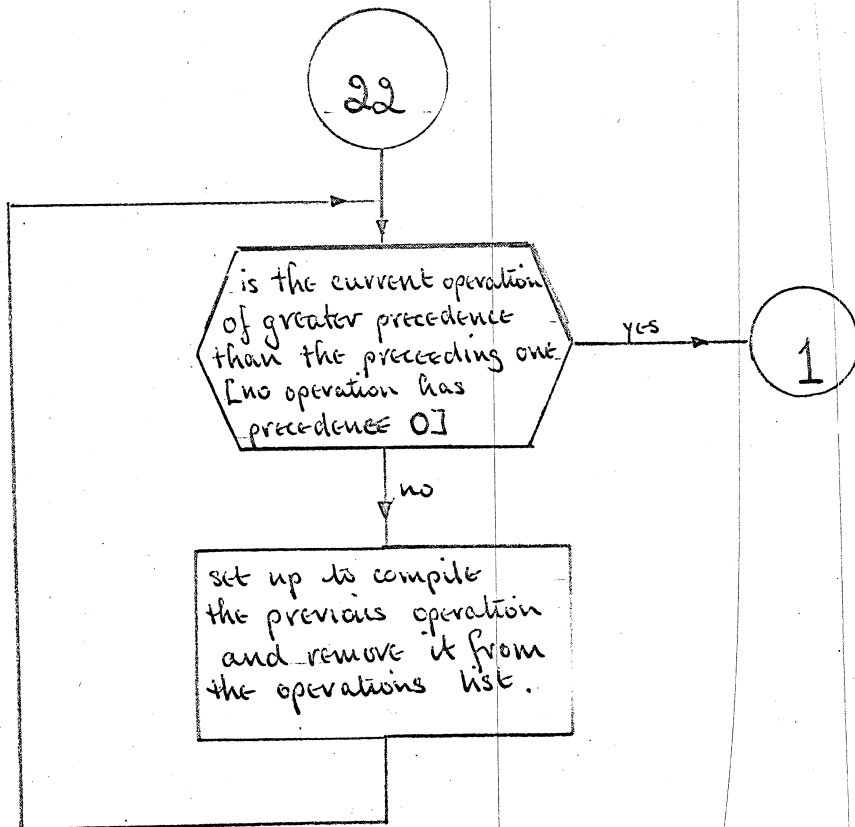 22
is the current operation
of greater precedence
than the preceeding one
[no operation has
precedence 0]
yes
1
no
set up to compile
the previous operation
and remove it from
the operations list.